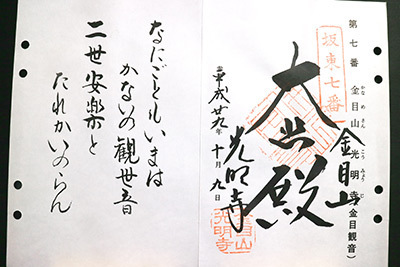 第七番 金目山 光明寺（金目観音）
坂東七番
金目山
大悲殿
光明寺
平成廿九年十月九日
金目山
光明寺
なにごともいまは
かないの観世音
二世安楽と
たれかいのらん